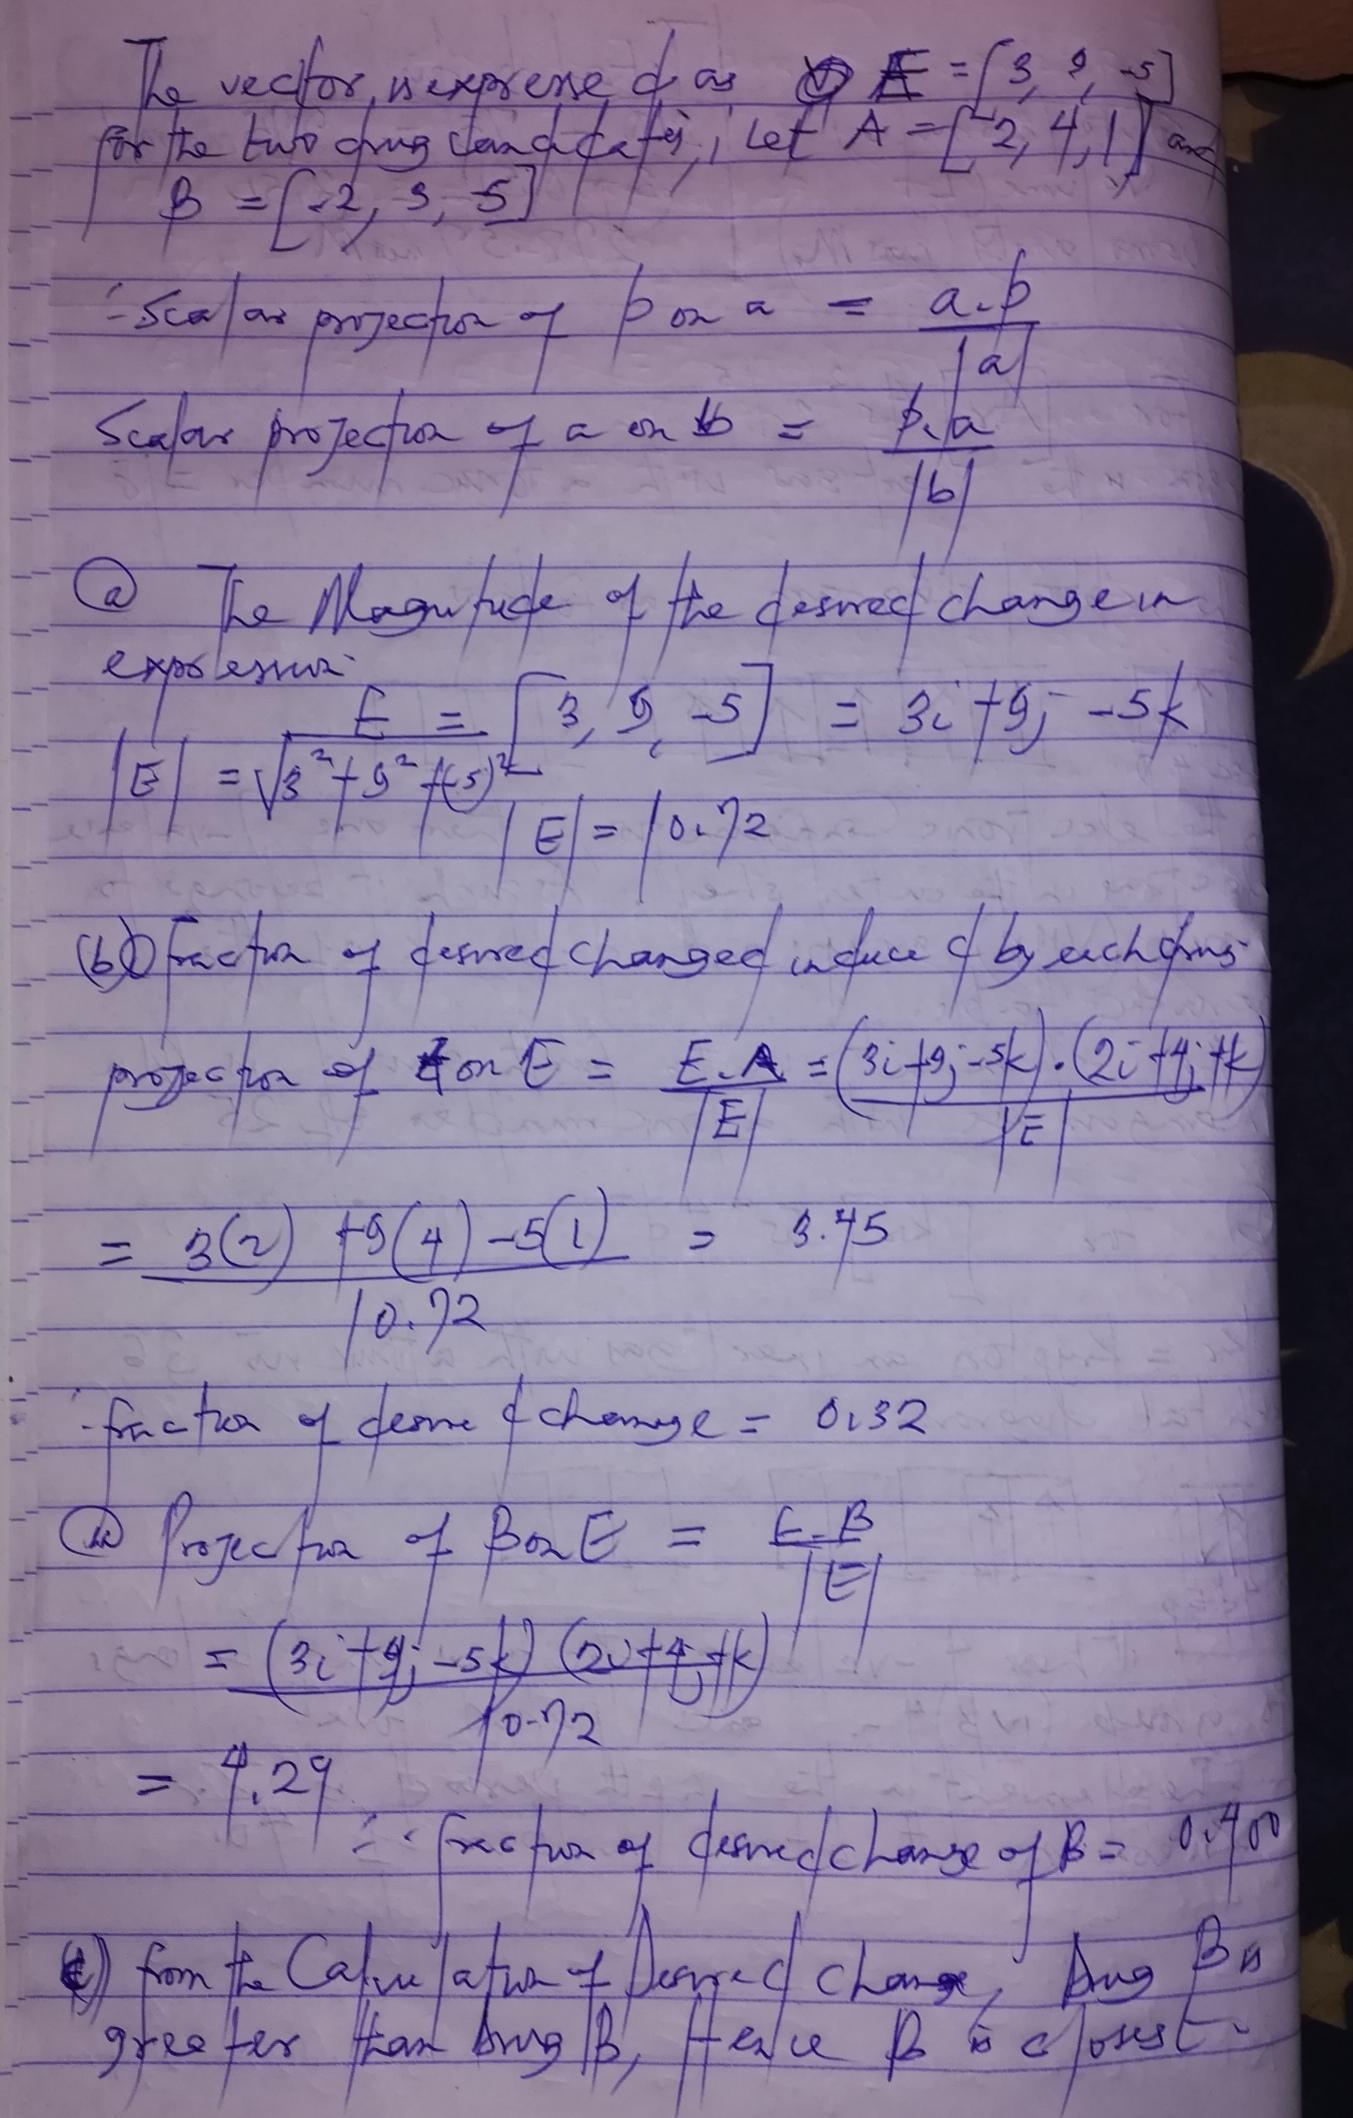 The vector is expressed as E = [3, 9, -5]
for the two drug candidates, Let A = [2, 4, 1] and
B = [-2, 3, -5]
∴ Scalar projection of b on a = a.b
|a|
Scalar projection of a on b = b.a
|b|
(a) The Magnitude of the desired change in
expression
E = [3, 9, -5] = 3i + 9j - 5k
|E| = √3² + 9² + (-5)²
|E| = 10.72
(b) fraction of desired changed induced by each drug
projection of A on E = E.A = (3i+9j-5k).(2i+4j+k)
|E| |E|
= 3(2) + 9(4) - 5(1) = 3.45
10.72
∴ fraction of desired change = 0.32
(ii) Projection of B on E = E.B
|E|
= (3i+9j-5k) (2i+4j+k)
10.72
= 4.29
∴ fraction of desired change of B = 0.400
(c) from the Calculation of Desired change, Drug B is
greater than Drug B, Hence B is closest.